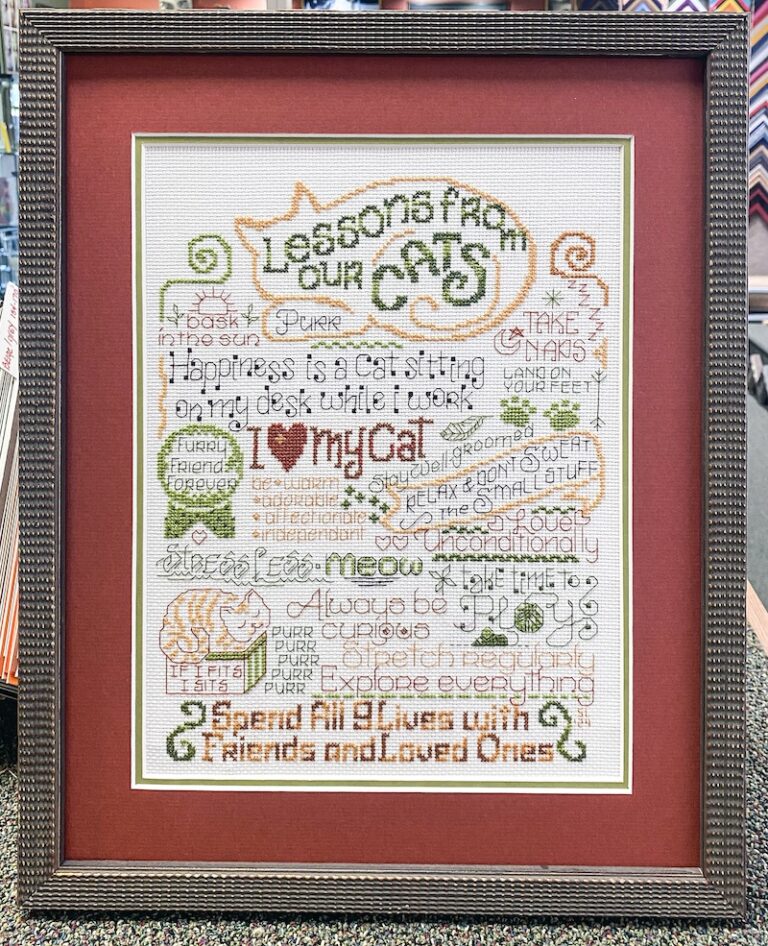 Lessons from
our CATS
Purr
bask
in the sun
TAKE
NAPS
Happiness is a cat sitting
on my desk while i work
LAND ON
YOUR FEET
I my cat
FURRY
Friends
Forever
be • warm
• adorable
• affectionate
• independant
Stay well groomed
RELAX & DONT SWEAT
the SMALL STUFF
Love
Unconditionally
Stress Less • meow
take time to
PLAY
Always be
curious
IF I FITS
I SITS
PURR
PURR
PURR
PURR
PURR
Stretch regularly
Explore everything
Spend All 9 Lives with
Friends and Loved Ones